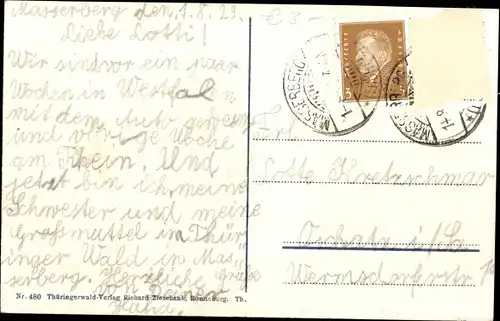 Masserberg den, 1.8.29.
Liebe Lotti!
Wir sind vor ein paar
Wochen in Westfalen
mit dem Auto gewesen
und vorige Woche
am Rhein. Und
jetzt bin ich, meine
Schwester und meine
Großmuttel im Thür
inger Wald in Mas„
serberg. Herzliche Grüße
MASSERBERG
Lotte Kretzschmar
Oschatz i/Sa
Wermsdorferstr
Nr. 480 Thüringerwald-Verlag Richard Zieschank, Ronneburg, Th.